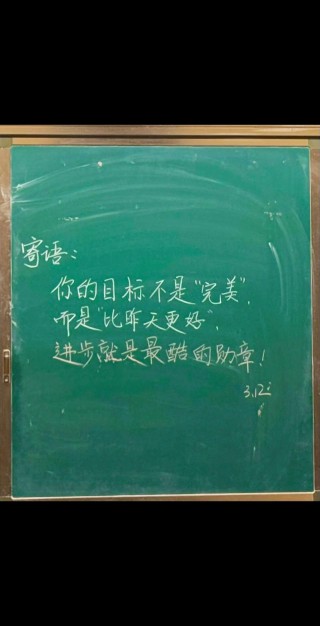 寄语：
你的目标不是“完美”，
而是“比昨天更好”，
进步就是最酷的勋章！
3.12